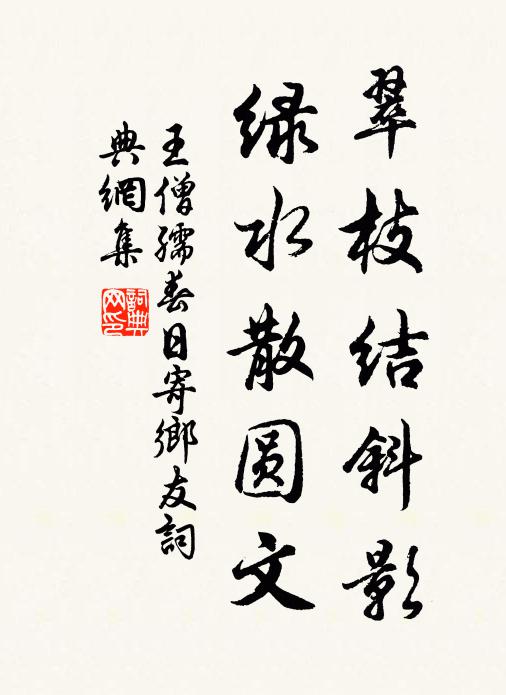 翠枝结斜影
绿水散圆文
王僧孺春日寄鄉友詞
典網集
詞典
网印